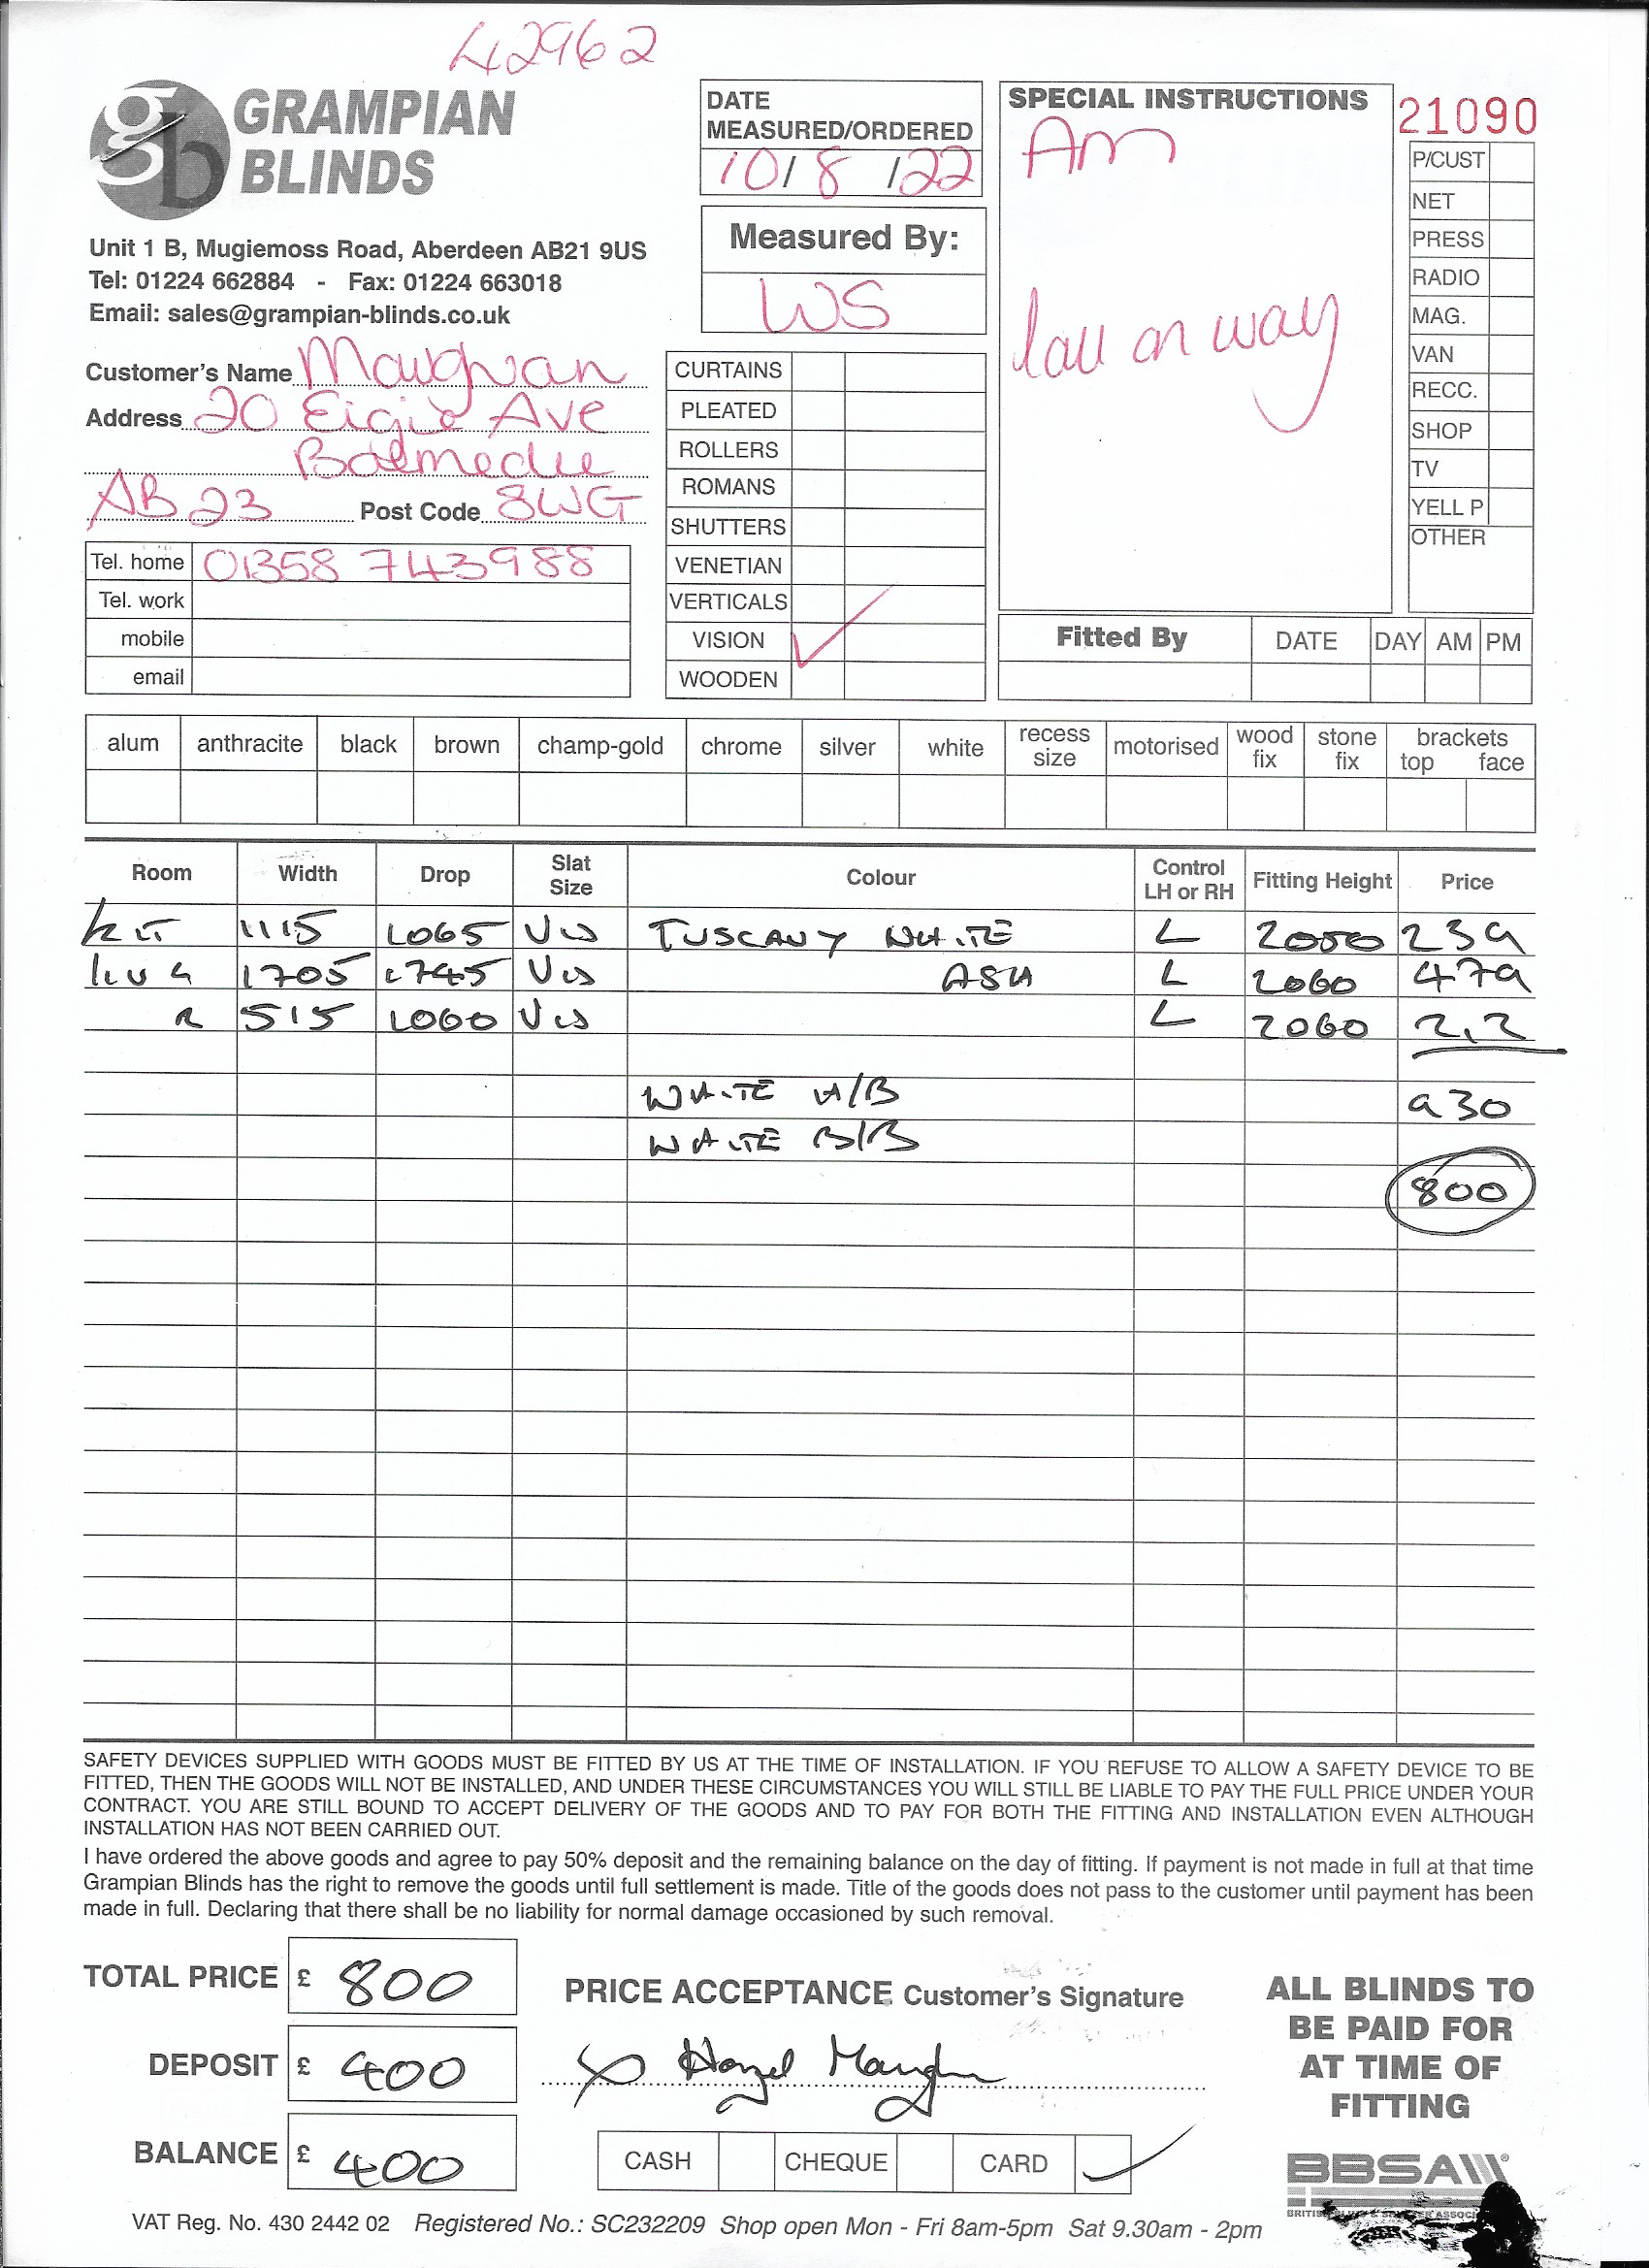 42962
GRAMPIAN
BLINDS
Unit 1 B, Mugiemoss Road, Aberdeen AB21 9US
Tel: 01224 662884 - Fax: 01224 663018
Email: sales@grampian-blinds.co.uk
Customer's Name Maughan
Address 20 Eigie Ave
Balmedie
AB23 Post Code 8WG
Tel. home 01358 743988
Tel. work
mobile
email
DATE
MEASURED/ORDERED
10/8/22
Measured By:
WS
CURTAINS
PLEATED
ROLLERS
ROMANS
SHUTTERS
VENETIAN
VERTICALS
VISION ✓
WOODEN
SPECIAL INSTRUCTIONS
Am
call on way
21090
P/CUST
NET
PRESS
RADIO
MAG.
VAN
RECC.
SHOP
TV
YELL P
OTHER
Fitted By DATE DAY AM PM
alum anthracite black brown champ-gold chrome silver white recess size motorised wood fix stone fix brackets top face
Room Width Drop Slat Size Colour Control LH or RH Fitting Height Price
KIT 1115 1065 VIS TUSCANY WHITE L 2050 239
1705 1745 VIS ASH L 2060 479
R 515 1060 VIS L 2060 212
WHITE H/B 930
WHITE B/B
800
SAFETY DEVICES SUPPLIED WITH GOODS MUST BE FITTED BY US AT THE TIME OF INSTALLATION. IF YOU REFUSE TO ALLOW A SAFETY DEVICE TO BE
FITTED, THEN THE GOODS WILL NOT BE INSTALLED, AND UNDER THESE CIRCUMSTANCES YOU WILL STILL BE LIABLE TO PAY THE FULL PRICE UNDER YOUR
CONTRACT. YOU ARE STILL BOUND TO ACCEPT DELIVERY OF THE GOODS AND TO PAY FOR BOTH THE FITTING AND INSTALLATION EVEN ALTHOUGH
INSTALLATION HAS NOT BEEN CARRIED OUT.
I have ordered the above goods and agree to pay 50% deposit and the remaining balance on the day of fitting. If payment is not made in full at that time
Grampian Blinds has the right to remove the goods until full settlement is made. Title of the goods does not pass to the customer until payment has been
made in full. Declaring that there shall be no liability for normal damage occasioned by such removal.
TOTAL PRICE £ 800
DEPOSIT £ 400
BALANCE £ 400
PRICE ACCEPTANCE Customer's Signature
x Hazel Maughan
CASH CHEQUE CARD ✓
ALL BLINDS TO
BE PAID FOR
AT TIME OF
FITTING
BBSA
VAT Reg. No. 430 2442 02 Registered No.: SC232209 Shop open Mon - Fri 8am-5pm Sat 9.30am - 2pm